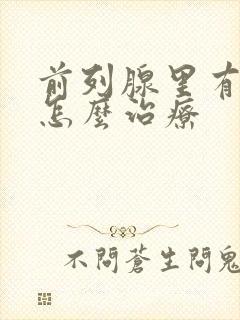 前列腺里有
怎麼治療
不問蒼生問鬼